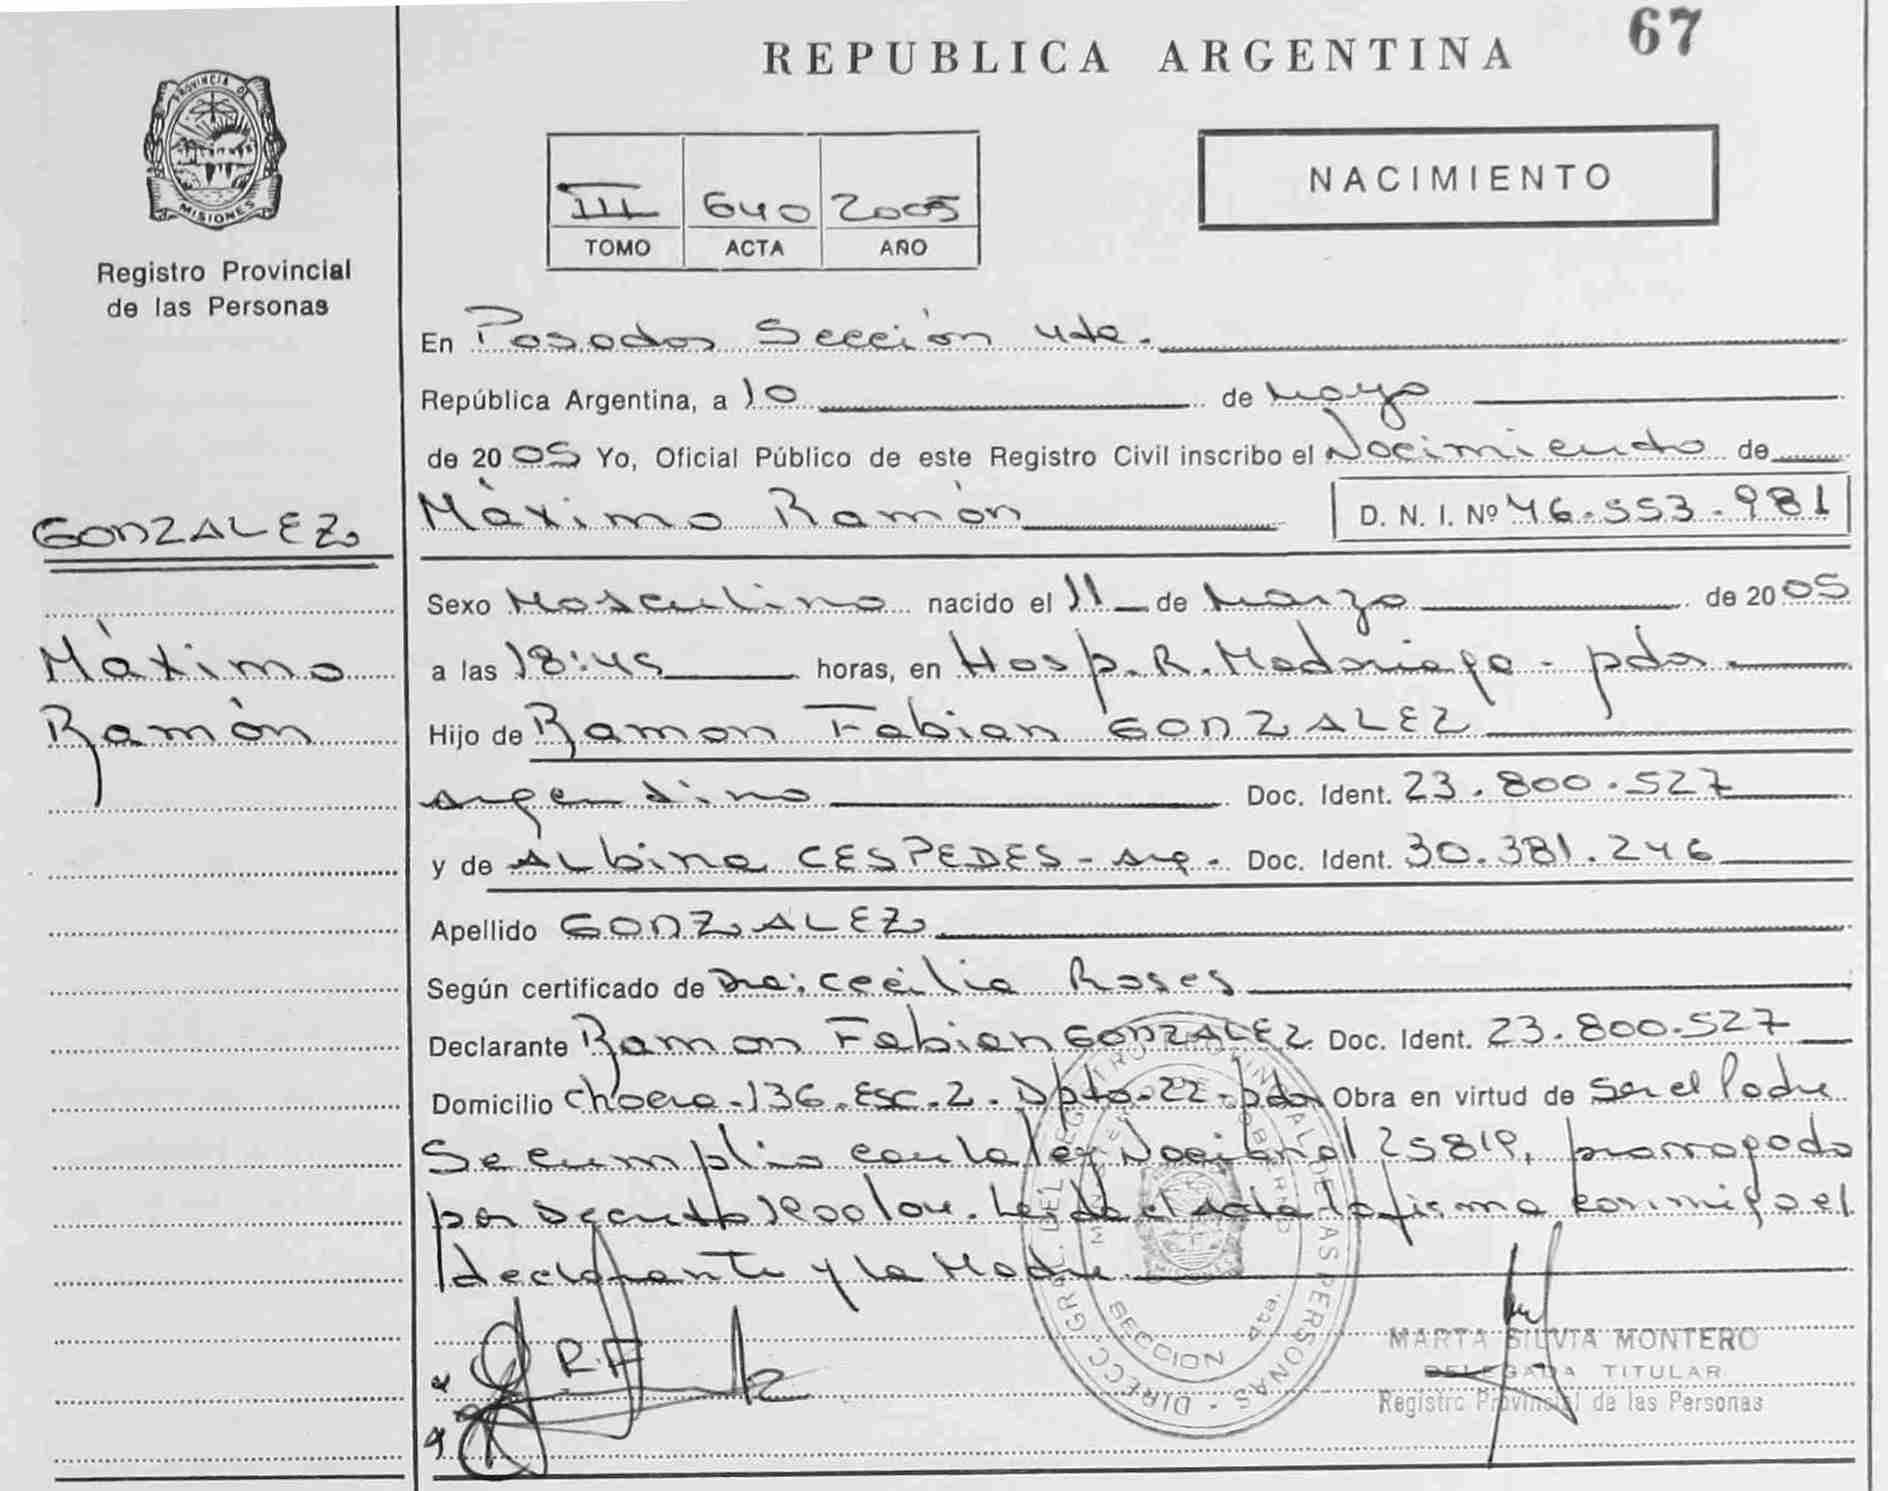 67
REPUBLICA ARGENTINA
PROVINCIA DE
MISIONES
Registro Provincial
de las Personas
NACIMIENTO
III 640 2005
TOMO ACTA AÑO
En Posadas Sección 4ta.
República Argentina, a 10 de Mayo
de 2005 Yo, Oficial Público de este Registro Civil inscribo el Nacimiento de
Máximo Ramón D. N. I. Nº 46.553.981
GONZALEZ
Máximo
Ramón
Sexo Masculino nacido el 11 de Marzo de 2005
a las 18:45 horas, en Hosp. R. Madariaga - pdas
Hijo de Ramon Fabian GONZALEZ
argentino Doc. Ident. 23.800.527
y de ALbina CESPEDES - arg. Doc. Ident. 30.381.246
Apellido GONZALEZ
Según certificado de Dra: Cecilia Roses
Declarante Ramon Fabian GONZALEZ Doc. Ident. 23.800.527
Domicilio chacra. 136. Esc. 2. Dpto. 22 - pdas Obra en virtud de Ser el Padre
Se cumplio con la ley Nacional 25819, prorrogado
por Decreto. Leida el acta la firma conmigo el
declarante y la Madre
R.F
DIRECC. GRAL. DEL REGISTRO PROVINCIAL DE LAS PERSONAS
SECCION 4ta.
MARTA SILVIA MONTERO
DELEGADA TITULAR
Registro Provincial de las Personas